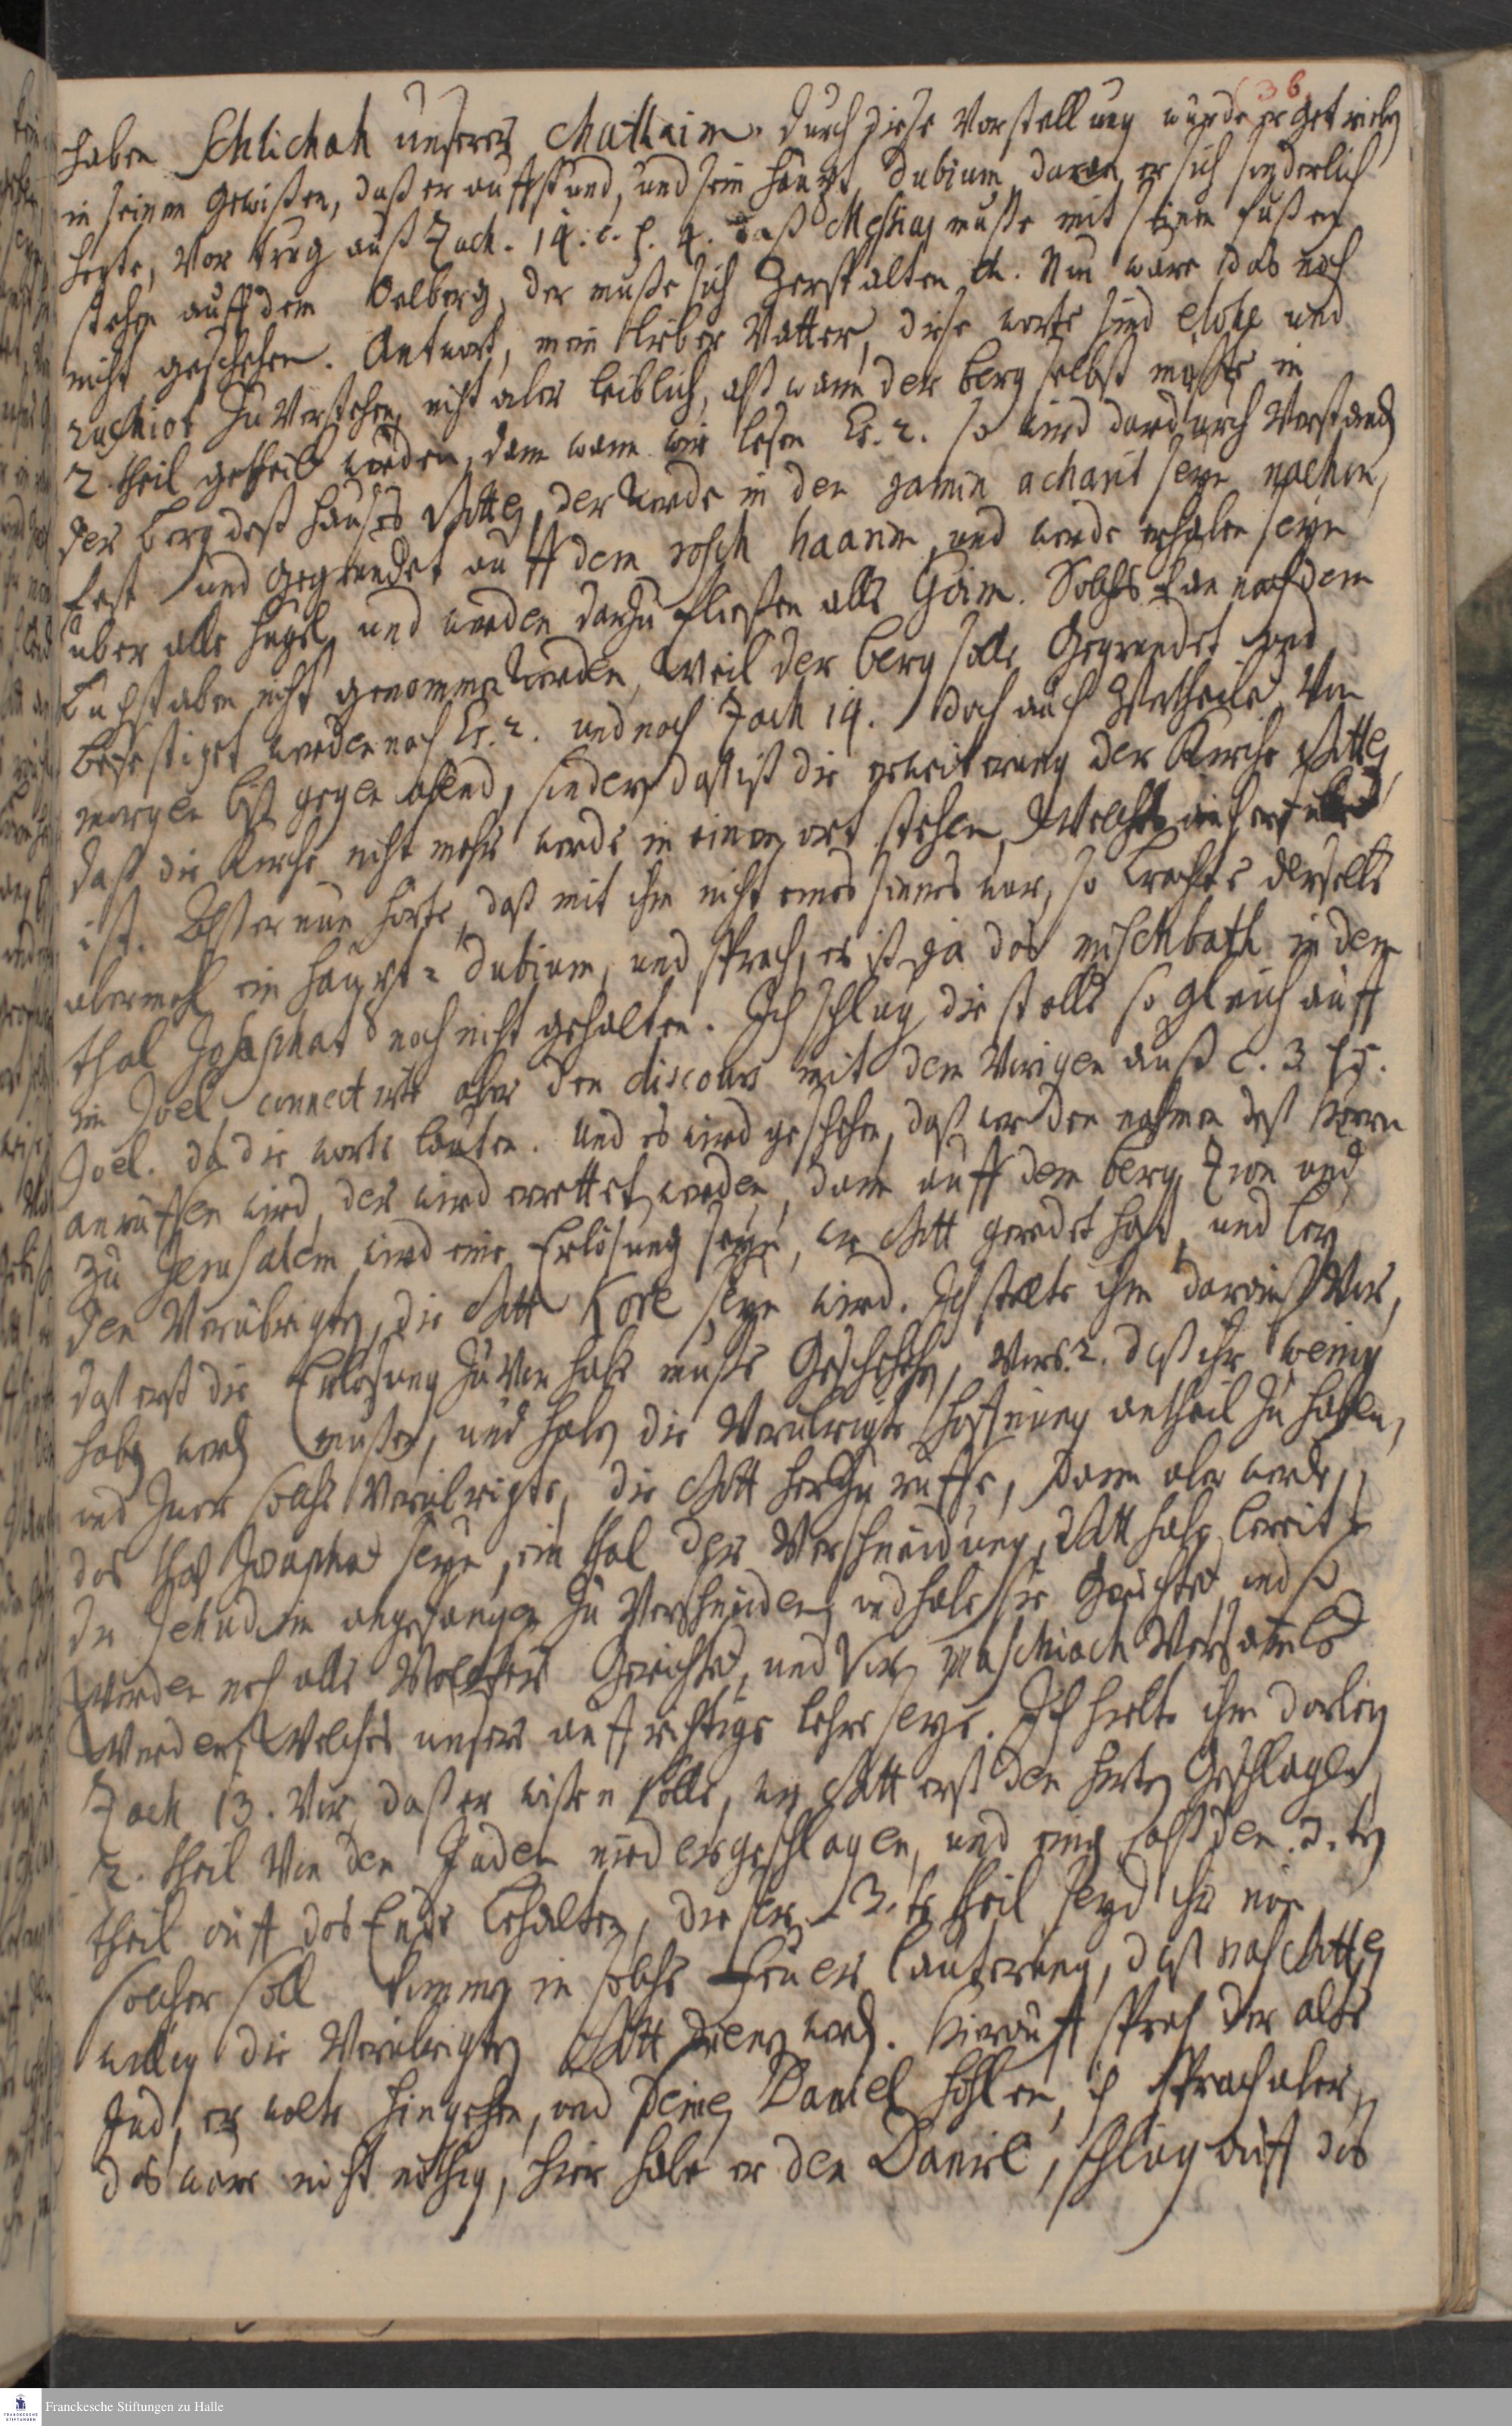 36
haben Schlichah unseres Muthaim. durch diese Vorstellung wurde er getrieben
in seinem Gewißen, daß er auffstund, und sein haupt dubium, daran er sich sonderlich
hegte, Vor trug auß Zach. 14. c. p. 4. daß Messias muste mit seinen fußen
stehen auff dem Oelberg, der muße sich zerspalten etc. Nun ware das noch
nicht geschehen. Antwort, mein lieber Vatter, diese worte sind elohe und
ruchiot zu Verstehen, nicht aber leiblich, alß wann der berg selbst müste in
2 theil getheilt werden, dann wann wir lesen Es. 2. so wird dardurch Verstanden
der berg deß haußes Gottes, der werde in den jamin acharit seyn nachon,
fest und gegrundet auff dem rosch haarim, und werde erhaben seyn
über alle hugel, und werden darzu fließen alle Goim. Solches kan nach dem
buchstaben nicht genommen werden, weil der berg solle gegrundet und
befestiget werden nach Es. 2. und nach Zach 14. doch auch zertheilt Von
morgen biß gegen abend, sondern daß ist die erweiterung der Kirche Gottes
daß die Kirche nicht mehr werde in einem ort stehen, welches auch erfüllt
ist. Alß er nun hörte, daß mit ihm nicht eines sinnes war, so brachte derselbe
abermahl ein haupt-dubium, und sprach, es ist ja das mischbath in dem
thal Josaphat noch nicht gehalten. Ich schlug die stelle so gleich auff
im Joel, connectirte aber den discours mit dem Vorigen auß c. 3. p. 5.
Joel. da die worte lauten. Und es wird geschehen, daß wer den nahmen deß Herrn
anruffen wird, der wird errettet werden, dann auff dem berg Zion und
zu Jerusalem wird eine Erlösung seyn, wie Gott geredet hat, und bey
den Verübrigten, die Gott Kore seyn wird. Ich stelte ihm daraus Vor,
daß erst die Erlösung zu Vor habe muste Geschehen, Vers. 2. daß ihr wenig
haben werden mußen, und haben die Verübrigte hoffnung antheil zu haben,
und zwar solche Verübrigte, die Gott herzu ruffe, dann aber werde
das thal Josaphat seyn, ein thal der Verschneidung, Gott habe bereits
die Jehudim angefangen zu Verschneiden, und habe sie Gerichtet, und so
würden noch alle Völcker Gerichtet, und Vor Maschiach Versamelt
werden, welches unsere auffrichtige lehre seye. Ich hielte ihm darbey
Zach 13. Vor, daß er wißen solle, wie Gott erst den hirten Geschlagen,
2. theil Von den Juden niedergeschlagen, und einen laßt den 3.ten
theil auff das Ende behalten, dieser 3.te theil seyd ihr nun
solcher soll kommen in solche feuer läuterung, daß nach Gottes
willen die Verübrigten Gott dienen werden. Hierauff sprach der alte
Jud, er wolte hingehen, und seinen Daniel hohlen, ich sprach aber,
das ware nicht nöthig, hier habe er den Daniel, schlug auff das
Franckesche Stiftungen zu Halle